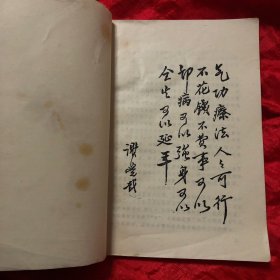 气功疗法人人可行
不花钱不费事可以
却病可以强身可以
全生可以延年
谢觉哉